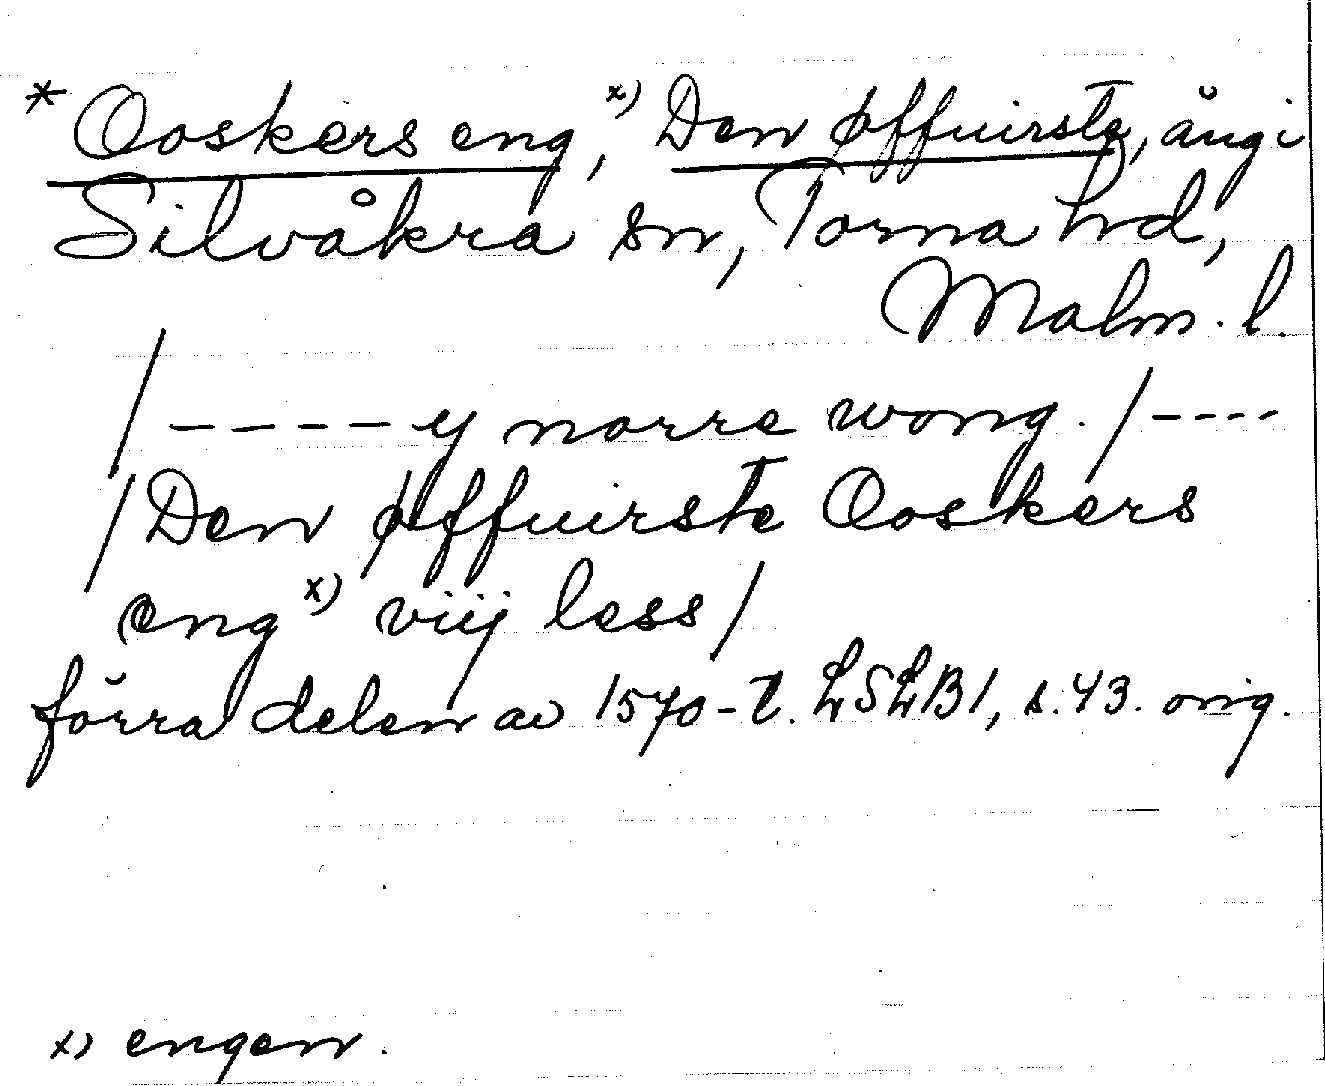 * Ooskers eng,x) Den øffuirste, äng i
Silvåkra sn, Torna hd,
Malm. l.
/-----y norre wong. /----
/Den øffuirste Ooskers
engx) viij less/
förra delen av 1570-t. LSLB1, s.43. orig.
x) engen.